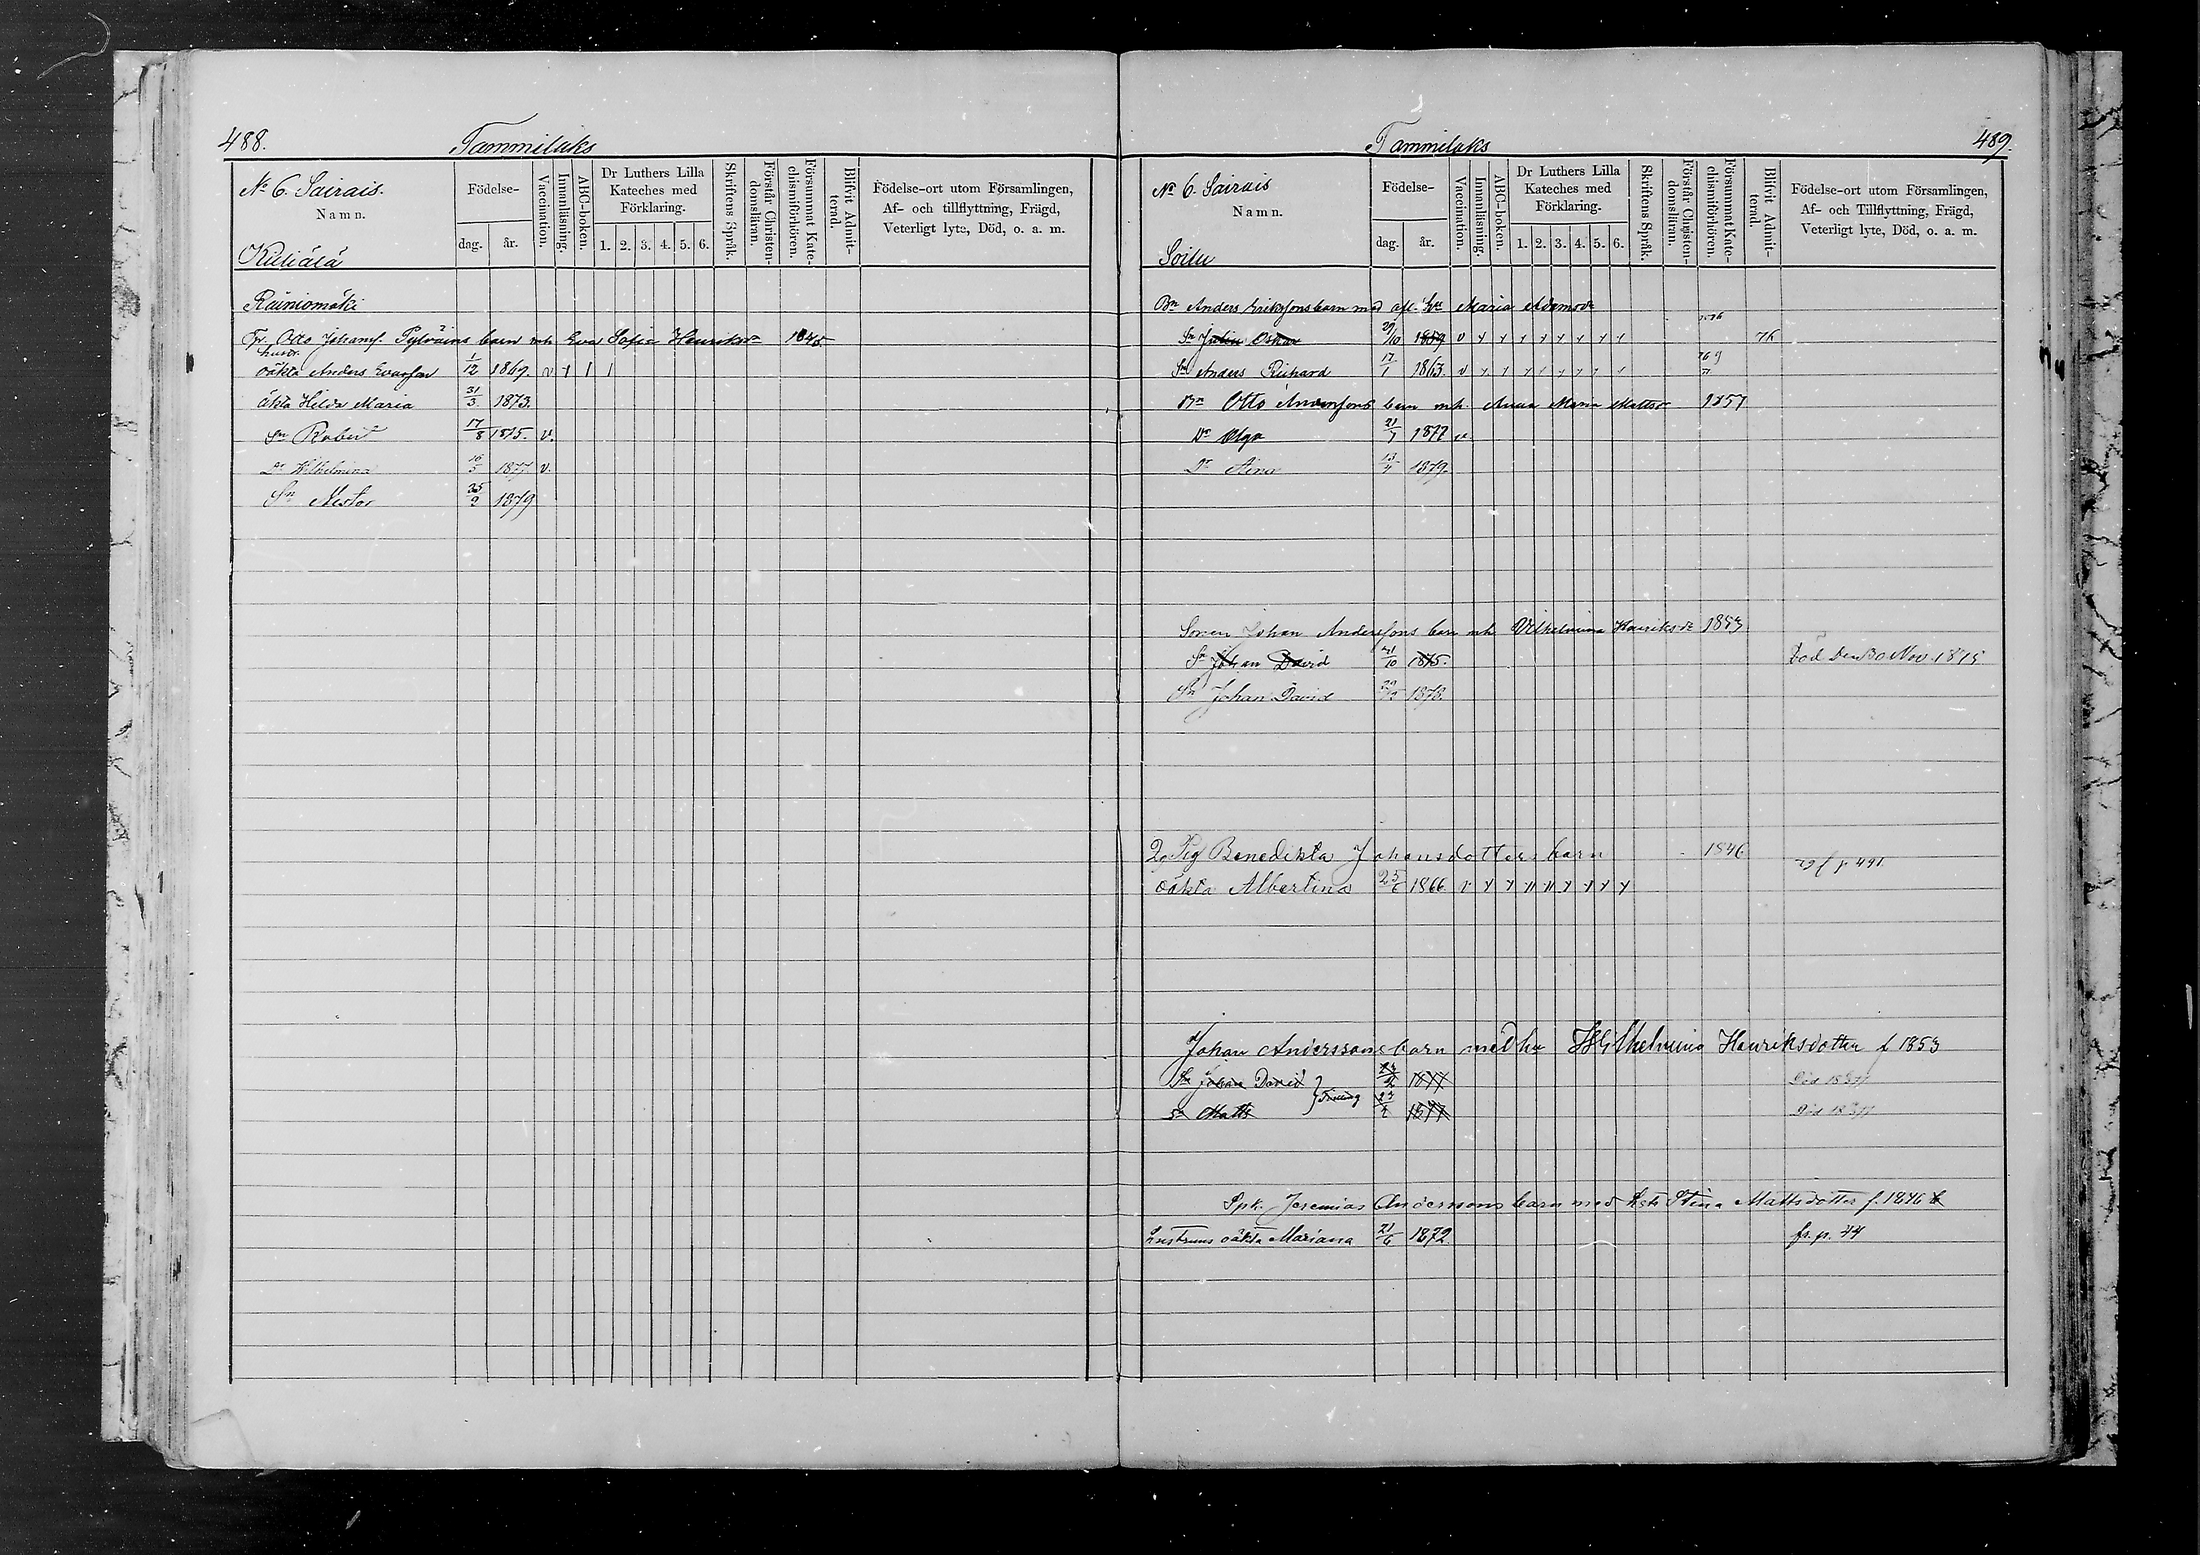 488.
Tammiluks
No 6. Sairais.
Namn.
Födelse-
dag.
år.
Vaccination.
Innanläsning.
ABC-boken.
Dr Luthers Lilla
Kateches med
Förklaring.
1. 2. 3. 4. 5. 6.
Skriftens Språk.
Förstår Christen-
domsläran.
Försummat Kate-
chismiförhören.
Blifvit Admit-
terad.
Födelse-ort utom Församlingen,
Af- och tillflyttning, Frägd,
Veterligt lyte, Död, o. a. m.
Otto Johansf. barn mh Eva Sofia Henriksdr 1845
hustr.
oäkta Anders 1/12 1869. v
äkta Hilda Maria 31/3 1873.
Sn Robert 17/8 1875. v.
Dr Wilhelmina 16/5 1877. v.
Sn Nestor 25/9 1879
489.
Tammiluks
No 6. Sairais
Namn.
Soilu
Födelse-
dag.
år.
Vaccination.
Innanläsning.
ABC-boken.
Dr Luthers Lilla
Kateches med
Förklaring.
1. 2. 3. 4. 5. 6.
Skriftens Språk.
Förstår Christen-
domsläran.
Försummat Kate-
chismiförhören.
Blifvit Admit-
terad.
Födelse-ort utom Församlingen,
Af- och Tillflyttning, Frägd,
Veterligt lyte, Död, o. a. m.
Bn Anders Eriksfons barn med afl. hu Maria Adamsdr
Sn Oskar 29/10 1859 v 76
Sn Anders Richard 17/1 1863. v
Bn Otto Andersfons barn mh. Anna Maria Mattsdr 1857
Dr Olga 21/7 1877
Dr 1879.
Sonen Johan Andersfons barn mh Vilhelmina Henriksdr 1853
Sn Johan David 21/10 1875. Död den 30 Nov. 1875
Sn Johan David 1878.
Pig Benedikta Johansdotters barn 1846
oäkta Albertina 25/6 1866. v
p 491
Johan Anderssons barn med hu Wilhelmina Henriksdotter f 1853
Sn Johan David 1877 Död 1877
Sn Matts 1877 Död 1877
Tvilling
Spk. Jeremias Anderssons barn med hstr Stina Mattsdotter f. 1846
hustruns oäkta Mariana 21/6 1872 fr. p. 44